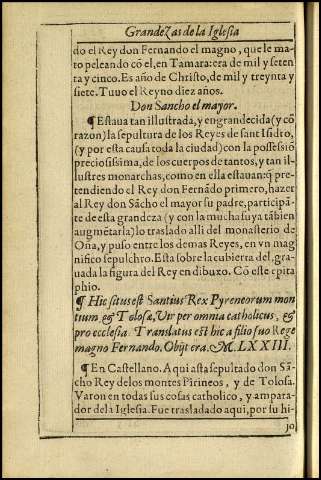 Grandezas de la Iglesia
do el Rey don Fernando el magno, que le ma-
to peleando cõ el, en Tamara: era de mil y seten
ta y cinco. Es año de Christo, de mil y treynta y
siete. Tuuo el Reyno diez años.
Don Sancho el mayor.
¶ Estaua tan illustrada, y engrandecida (y cõ
razon) la sepultura de los Reyes de sant Isidro,
(y por esta causa toda la ciudad) con la possessiõ
preciosissima, de los cuerpos de tantos, y tan il-
lustres monarchas, como en ella estauan: q̃ pre-
tendiendo el Rey don Fernãdo primero, hazer
al Rey don Sãcho el mayor su padre, participã-
te de esta grandeza (y con la mucha suya tãbien
augmẽtarla) lo traslado alli del monasterio de
Oña, y puso entre los demas Reyes, en vn mag
nifico sepulchro. Esta sobre la cubierta del, gra-
uada la figura del Rey en dibuxo. Cõ este epita
phio.
¶ Hic situs est Santius Rex Pyreneorum mon
tium & Tolosæ, Vir per omnia catholicus, &
pro ecclesia. Translatus est hic a filio suo Rege
magno Fernando. Obijt era. M.LXXIII.
¶ En Castellano. Aqui asta sepultado don Sã-
cho Rey de los montes Pirineos, y de Tolosa.
Varon en todas sus cosas catholico, y ampara-
dor de la Iglesia. Fue trasladado aqui, por su hi-
jo